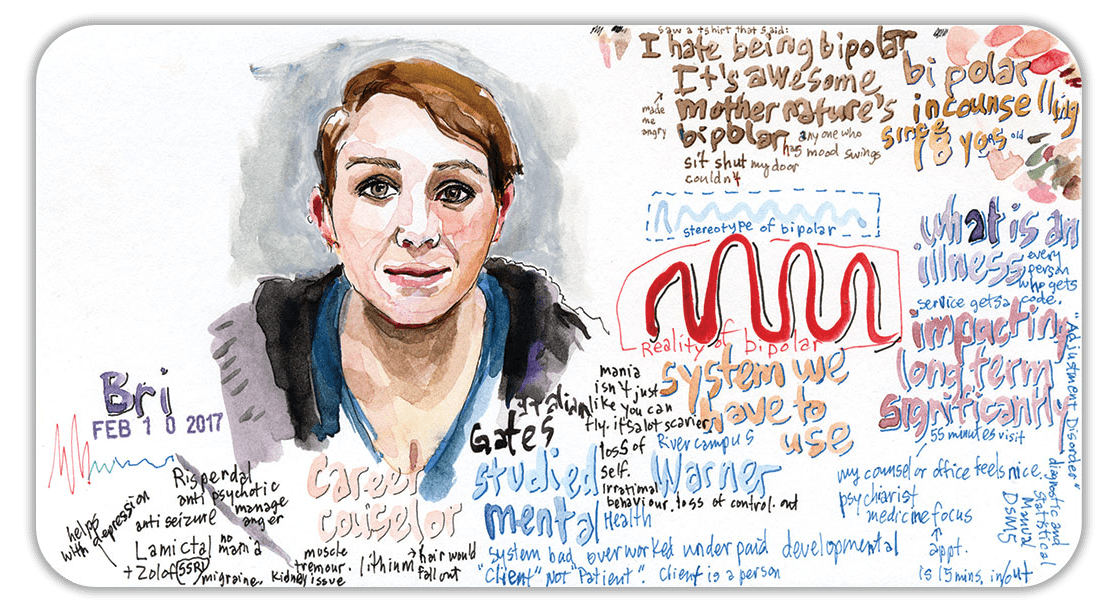 saw a tshirt that said:
I hate being bipolar
It's awesome
made
me
angry
mother nature's
bipolar
any one who
has mood swings
sit shut my door
couldn't
bipolar
in counselling
since
18 yrs old
stereotype of bipolar
Reality of bipolar
what is an
illness
every
person
who gets
service gets a code.
impacting
long term
significantly
"Adjustment Disorder"
diagnostic and
statistical
Manual
DSM5
system we
have to
use
mania
isn't just
like you can
fly. it's a lot scarier
loss of
self.
irrational
behaviour. loss of control. and
Gates
River campus
Career
counselor
studied
mental
Warner
Health
55 minutes visit
my counselor office feels nice.
psychiarist
medicine focus
appt.
is 15 mins. in/out
system bad overworked under paid developmental
"Client" not "Patient". Client is a person
Bri
FEB 10 2017
helps
with depression
Risperdal
anti psychotic
manage
anger
anti seizure
Lamictal
no
mania
+ Zoloft (SSRI)
migraine.
muscle
tremour.
kidney issue
lithium → hair would
fall out